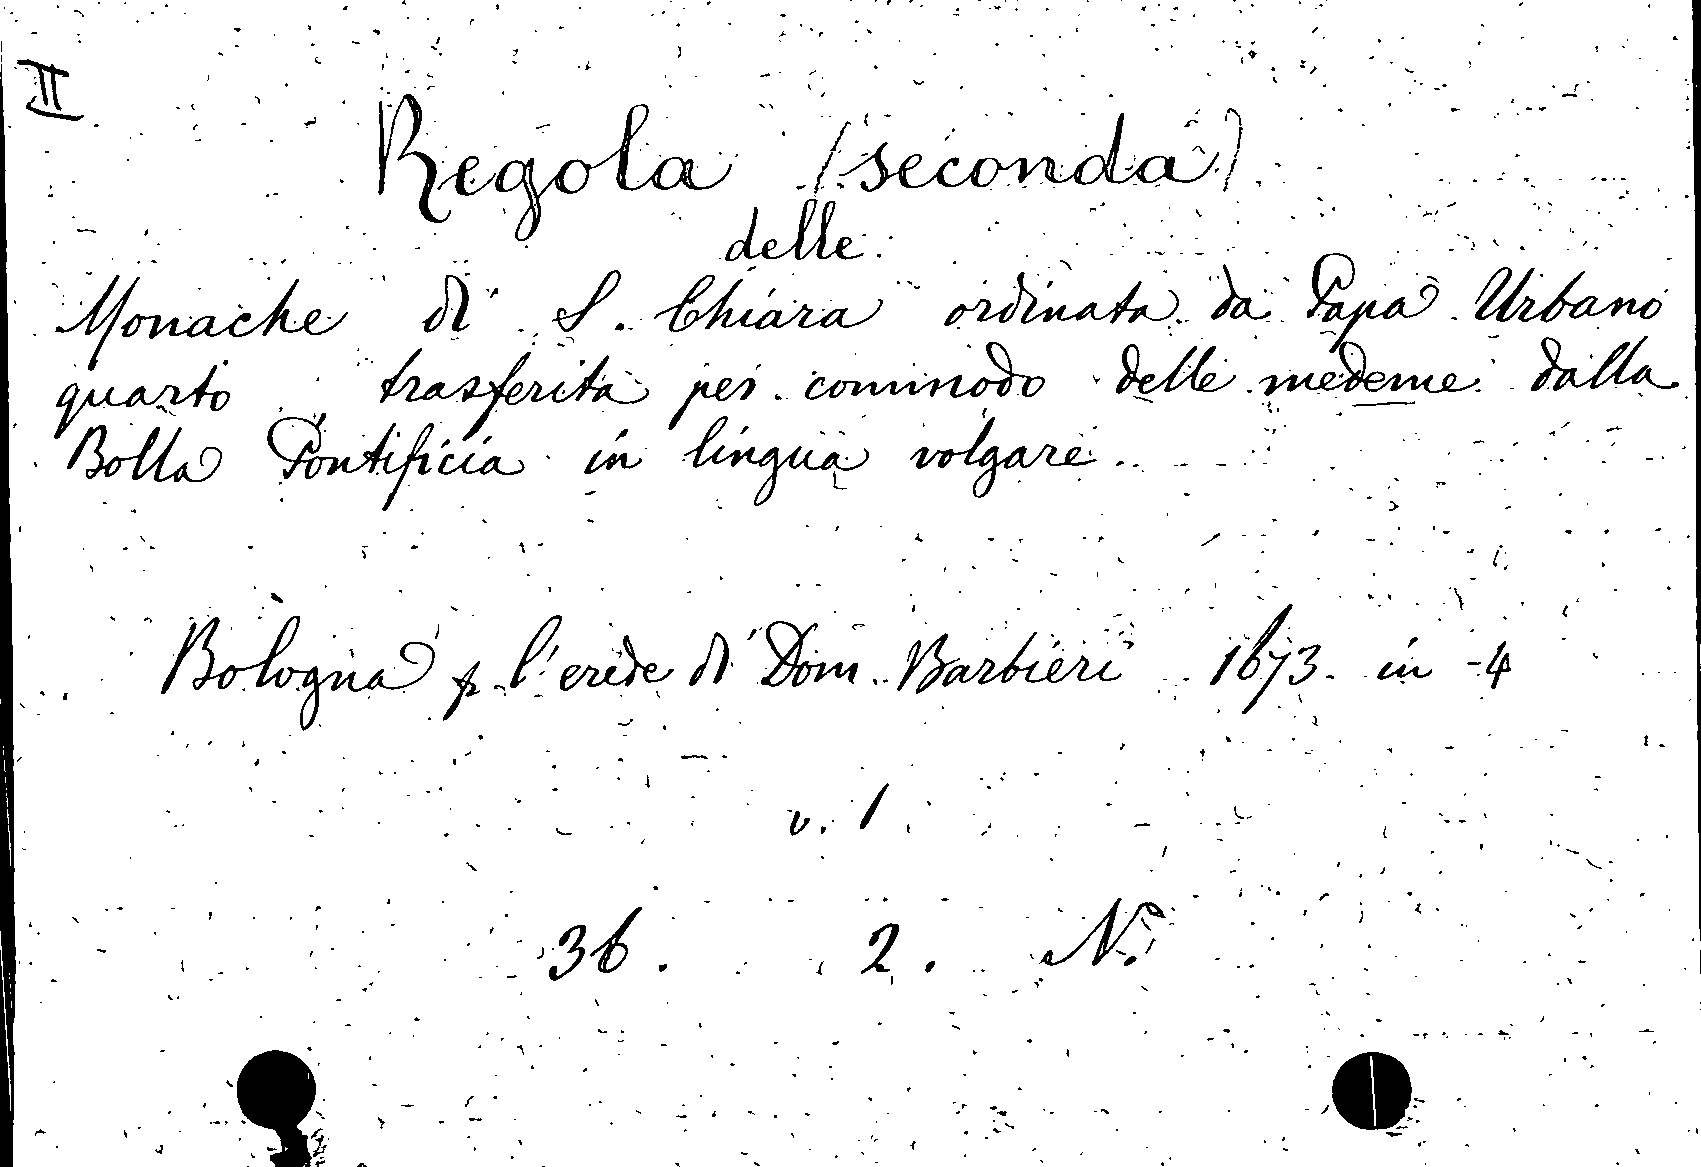 II
Regola (seconda)
delle
Monache di S. Chiara ordinata da Papa Urbano
quarto trasferita per commodo delle medeme dalla
Bolla Pontificia in lingua volgare.
Bologna p. l'erede di Dom. Barbieri 1673. in 4
v. 1
36. 2. N.